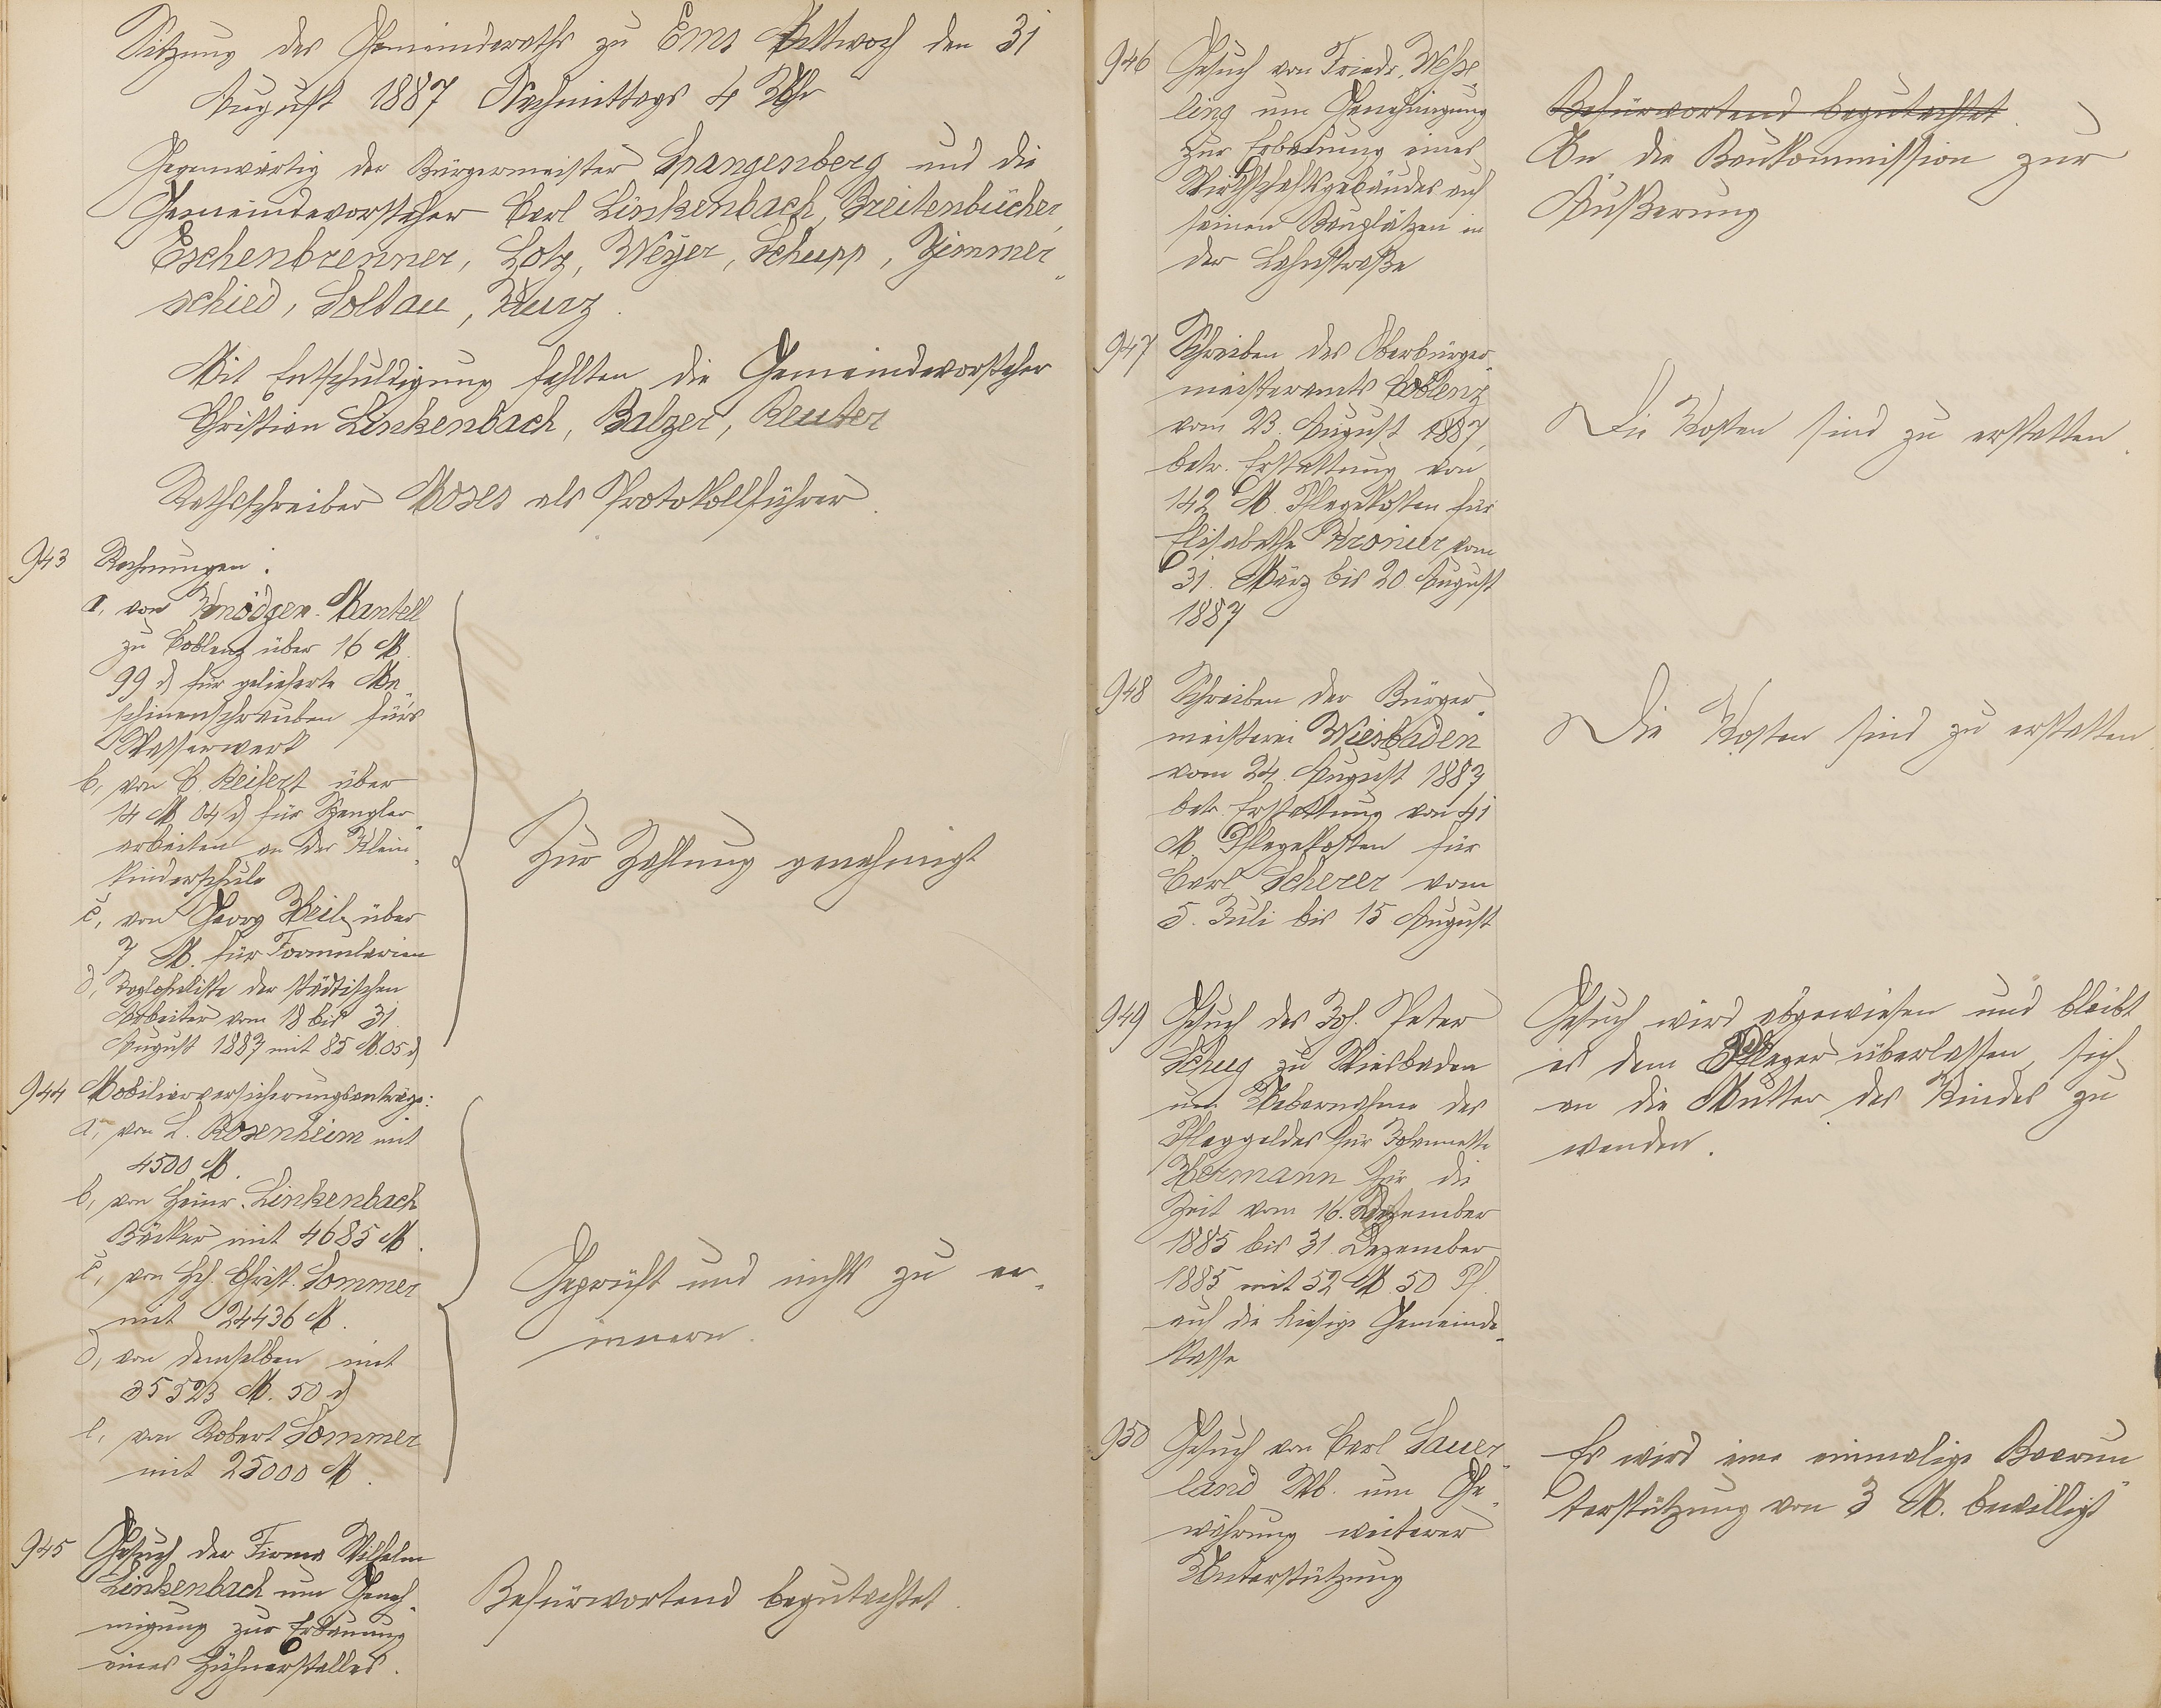 Sitzung des Gemeinderaths zu Ems Mittwoch den 31
August 1887 Nachmittags 4 Uhr
Gegenwärtig der Bürgermeister Spangenberg und die
Gemeindevorsteher Carl Linkenbach, Breitenbücher,
Eschenbrenner, Lotz, Weyer, Schupp, Zimmer„
schied, Soltau, Kurz.
Mit Entschuldigung fehlten die Gemeindevorsteher
Christian Linkenbach, Balzer, Reuter
Rathsschreiber Moses als Protokollführer.
943 Rechnungen:
a, von Knödgen-Mantell
zu Coblenz über 16 M.
99 d für gelieferte Ma„
schinenschrauben fürs
Wasserwerk
b, von C. Reifert über
14 M 04 d für Spengler„
arbeiten an der Klein„
kinderschule
c, von Georg Weil über
7 M. für Formularien
d, Taglohnliste der städtischen
Arbeiter vom 18 bis 31.
August 1887 mit 85 M. 05 d
Zur Zahlung genehmigt
944 Mobiliarversicherungsanträge:
a, von L. Rosenheim mit
4500 M.
b, von Heinr. Linkenbach
Bäcker mit 4685 M.
c, von Hch. Christ. Sommer
mit 24436 M.
d, von demselben mit
35523 M. 50 d
e, von Robert Sommer
mit 25000 M.
Geprüft und nichts zu er„
innern.
945 Gesuch der Firma Wilhelm
Linkenbach um Geneh„
migung zur Erbauung
eines Hühnerstalles.
Befürwortend begutachtet.
946 Gesuch von Friedr. Weß„
ling um Genehmigung
zur Erbauung eines
Wirthschaftsgebäudes auf
seinen Bauplätzen in
der Lahnstraße
Befürwortend begutachtet.
An die Baukommission zur
Äußerung
947 Schreiben des Oberbürger„
meisteramts Coblenz
vom 23. August 1887,
betr. Erstattung von
142 M. Pflegekosten für
Elisabethe Kronier vom
31. März bis 20. August
1887
Die Kosten sind zu erstatten.
948 Schreiben der Bürger„
meisterei Wiesbaden
vom 24. August 1887
betr. Erstattung von 41
M. Pflegekosten für
Carl Scherer vom
5. Juli bis 15 August
Die Kosten sind zu erstatten.
949 Gesuch des Joh. Peter
Schug zu Wiesbaden
um Uebernahme des
Pfleggeldes für Johannette
Hermann für die
Zeit vom 16. Dezember
1885 bis 31. Dezember
1885 mit 52 M. 50 Pf.
auf die hiesige Gemeinde„
kasse
Gesuch wird abgewiesen und bleibt
es dem Pfleger überlassen, sich
an die Mutter des Kindes zu
wenden.
950 Gesuch von Carl Sauer„
land Wb. um Ge„
währung weiterer
Unterstützung
Es wird eine einmalige Baarun„
terstützung von 3 M. bewilligt